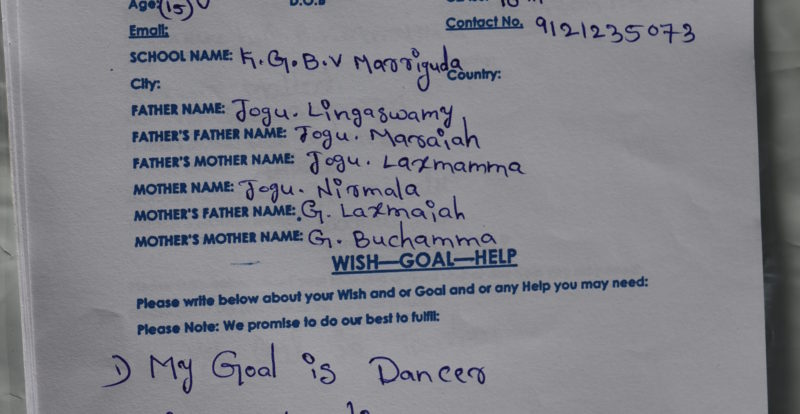 Age: (15) D.O.B
Email: Contact No. 9121235073
SCHOOL NAME: K.G.B.V Marriguda
City: Country:
FATHER NAME: Jogu. Lingaswamy
FATHER'S FATHER NAME: Jogu. Marsaiah
FATHER'S MOTHER NAME: Jogu. Laxmamma
MOTHER NAME: Jogu. Nirmala
MOTHER'S FATHER NAME: G. Laxmaiah
MOTHER'S MOTHER NAME: G. Buchamma
WISH—GOAL—HELP
Please write below about your Wish and or Goal and or any Help you may need:
Please Note: We promise to do our best to fulfil:
1) My Goal is Dancer